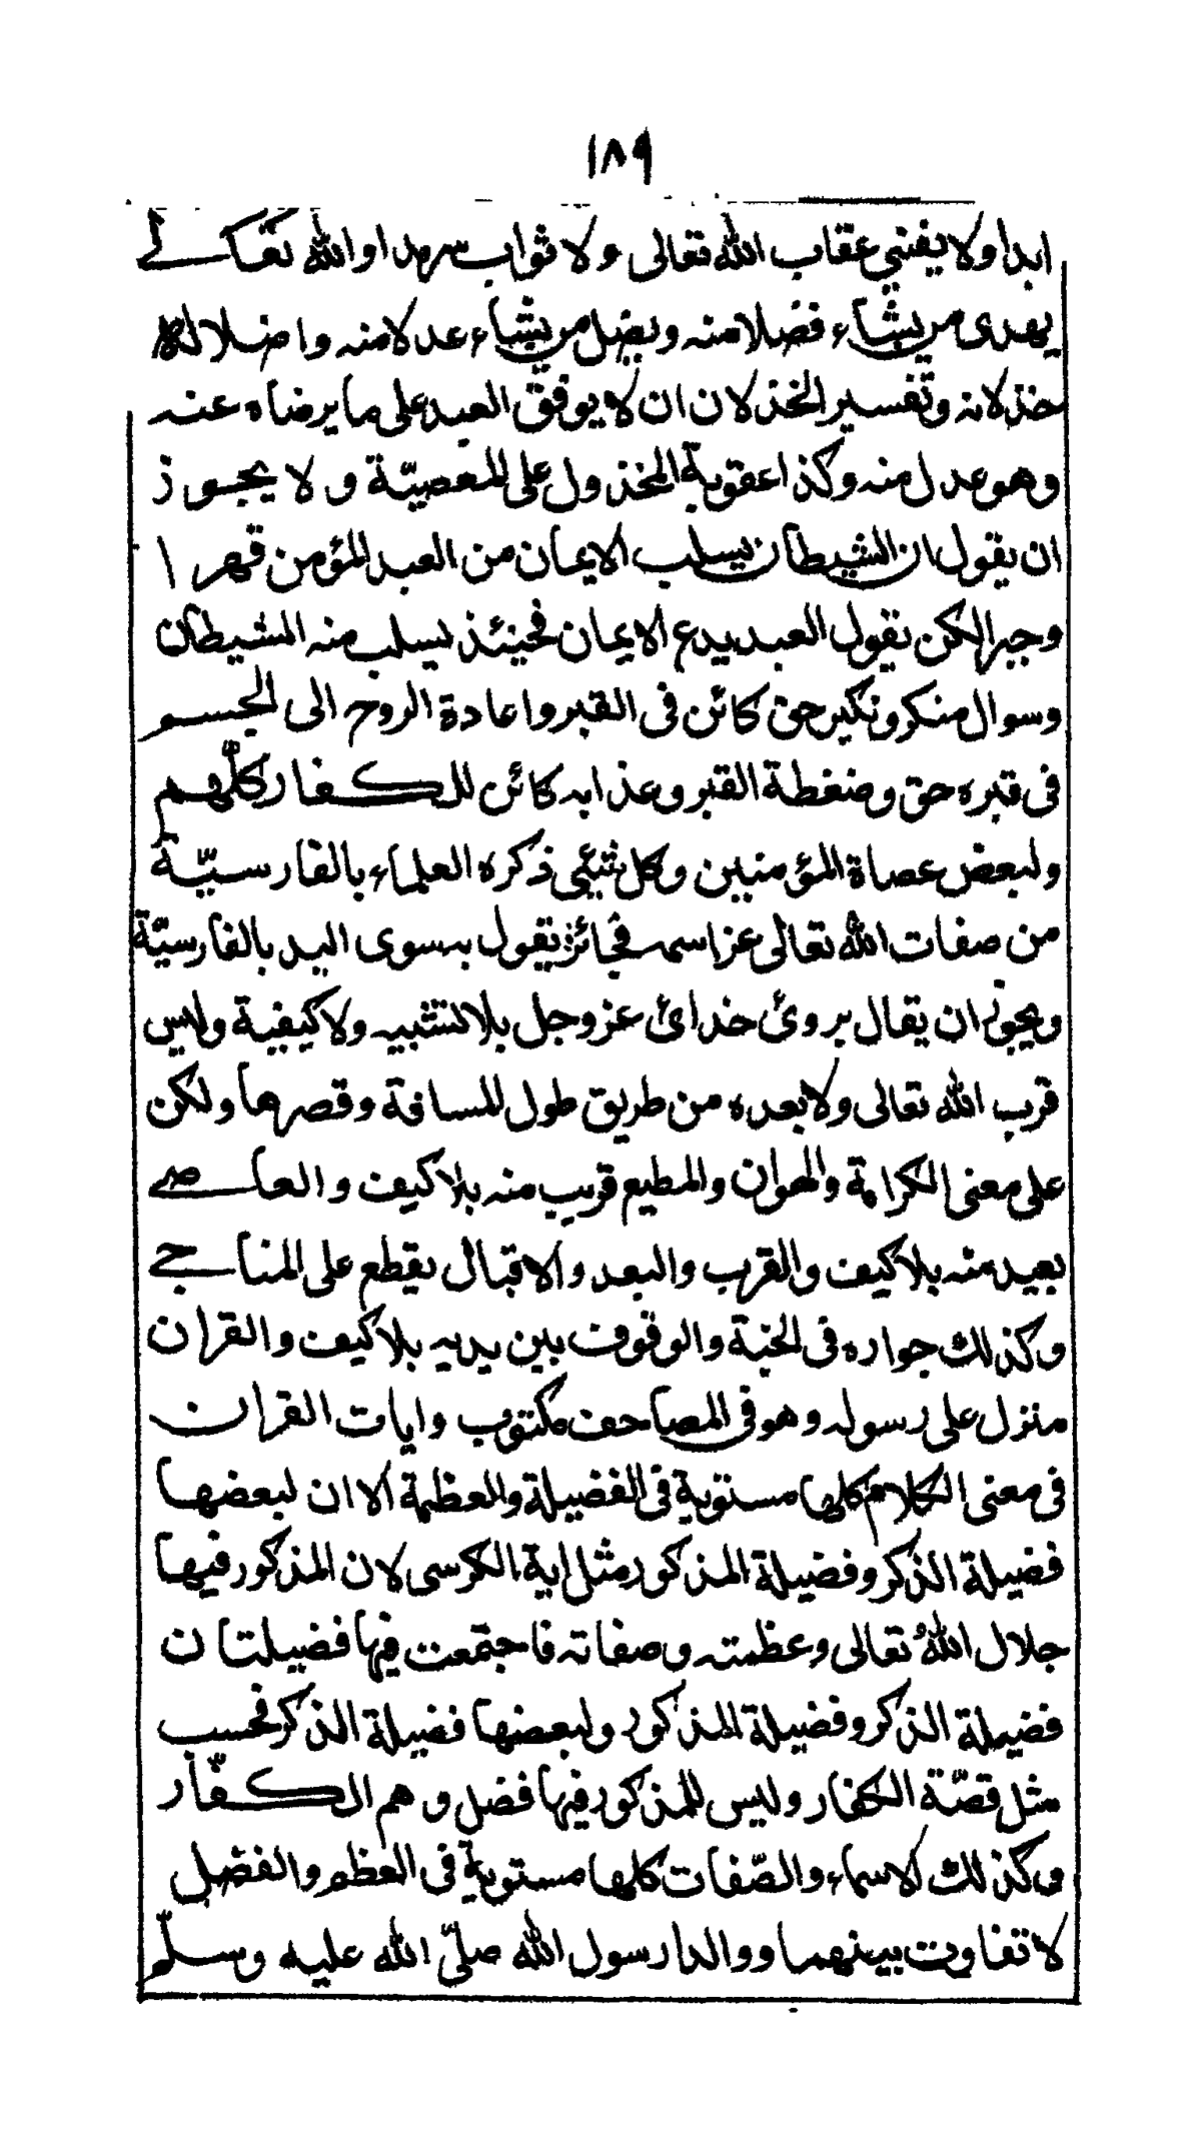 ١٨٩
ابدا ولا يفنى عقاب الله تعالى ولا ثوابه سرمدا والله تعالى
يهدى من يشاء فضلا منه ويضل من يشاء عدلا منه واضلاله
خذلانه وتفسير الخذلان ان لا يوفق العبد على ما يرضاه عنه
وهو عدل منه وكذا عقوبة المخذول على المعصيّة ولا يجوز
ان يقول ان الشيطان يسلب الايمان من العبد المؤمن قهرا
وجبرا لكن يقول العبد يدع الايمان فحينئذ يسلب منه الشيطان
وسوال منكر ونكير حق كائن فى القبر واعادة الروح الى الجسم
فى قبره حق وضغطة القبر وعذابه كائن للكفار كلّهم
ولبعض عصاة المؤمنين وكل شئى ذكره العلماء بالفارسيّة
من صفات الله تعالى عز اسمه فجائز يقول به سوى اليد بالفارسيّة
ويجوز ان يقال بروئ خدائ عز وجل بلا تشبيه ولا كيفية وليس
قرب الله تعالى ولا بعده من طريق طول المسافة وقصرها ولكن
على معنى الكرامة والهوان والمطيع قريب منه بلا كيف والعاصى
بعيد منه بلا كيف والقرب والبعد والاقبال يقطع على المناجى
وكذلك جواره فى الجنة والوقوف بين يديه بلا كيف والقران
منزل على رسوله وهو فى المصاحف مكتوب وايات القران
فى معنى الكلام كلها مستوية فى الفضيلة والعظمة الا ان لبعضها
فضيلة الذكر وفضيلة المذكور مثل اية الكرسى لان المذكور فيها
جلال الله تعالى وعظمته وصفاته فاجتمعت فيها فضيلتان
فضيلة الذكر وفضيلة المذكور ولبعضها فضيلة الذكر فحسب
مثل قصّة الكفار وليس للمذكور فيها فضل وهم الكفّار
وكذلك الاسماء والصّفات كلها مستوية فى العظم والفضل
لا تفاوت بينهما ووالدا رسول الله صلىّ الله عليه وسلّم